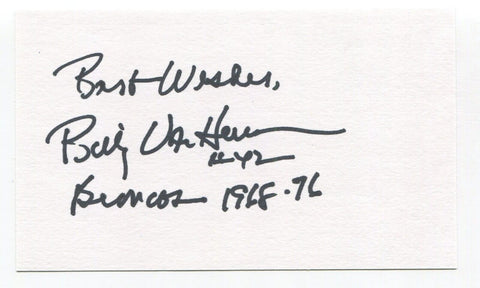 Best Wishes,
Billy Van Heusen
#42
Broncos 1968-76